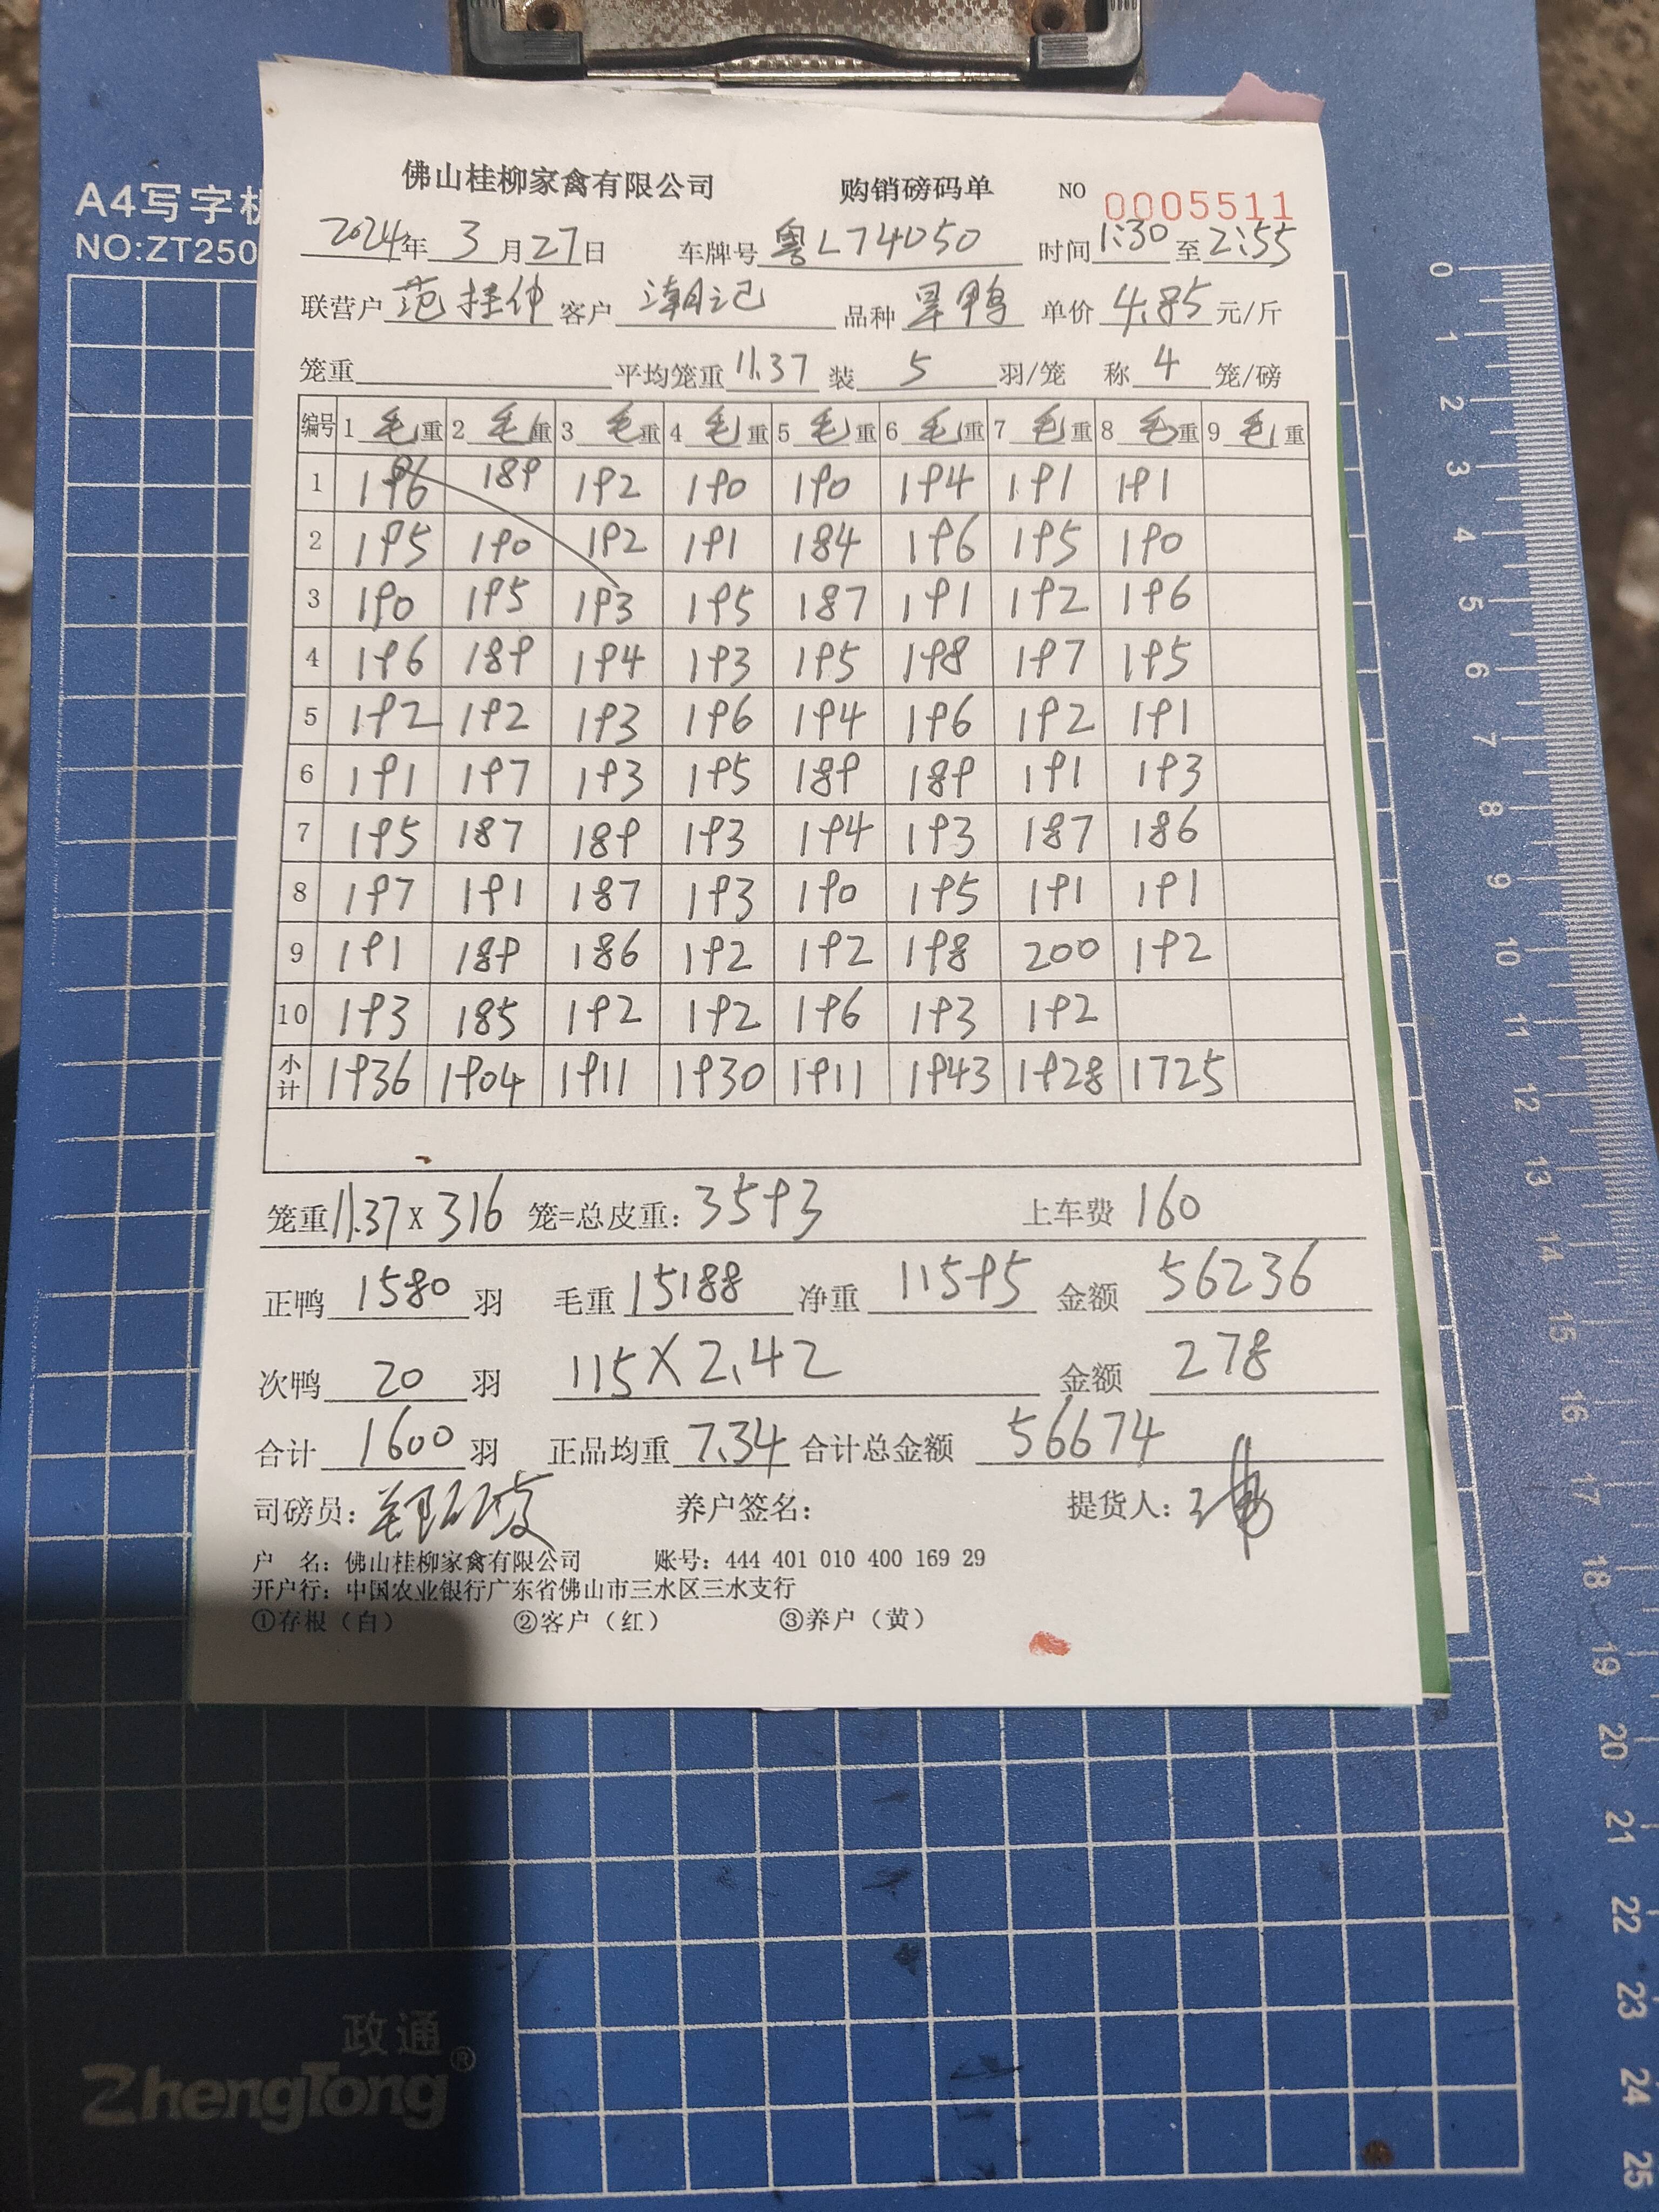 A4写字板
NO:ZT250
佛山桂柳家禽有限公司 购销磅码单 NO 0005511
2024年 3月27日 车牌号 粤L74050 时间 1:30 至 2:55
联营户 范桂仲 客户 潮记 品种 旱鸭 单价 4.85 元/斤
笼重 平均笼重 11.37 装 5 羽/笼 称 4 笼/磅
编号 1 毛重 2 毛重 3 毛重 4 毛重 5 毛重 6 毛重 7 毛重 8 毛重 9 毛重
1 196 189 192 190 190 194 191 191
2 195 190 192 191 184 196 195 190
3 190 195 193 195 187 191 192 196
4 196 189 194 193 195 198 197 195
5 192 192 193 196 194 196 192 191
6 191 197 193 195 189 189 191 193
7 195 187 189 193 194 193 187 186
8 197 191 187 193 190 195 191 191
9 191 189 186 192 192 198 200 192
10 193 185 192 192 196 193 192
小计 1936 1904 1911 1930 1911 1943 1928 1725
笼重 11.37 X 316 笼=总皮重: 3593 上车费 160
正鸭 1580 羽 毛重 15188 净重 11595 金额 56236
次鸭 20 羽 115X2.42 金额 278
合计 1600 羽 正品均重 7.34 合计总金额 56674
司磅员: 养户签名: 提货人:
户 名: 佛山桂柳家禽有限公司 账号: 444 401 010 400 169 29
开户行: 中国农业银行广东省佛山市三水区三水支行
①存根（白） ②客户（红） ③养户（黄）
0
1
2
3
4
5
6
7
8
9
10
11
12
13
14
15
16
17
18
19
20
21
22
23
24
25
政通®
ZhengTong